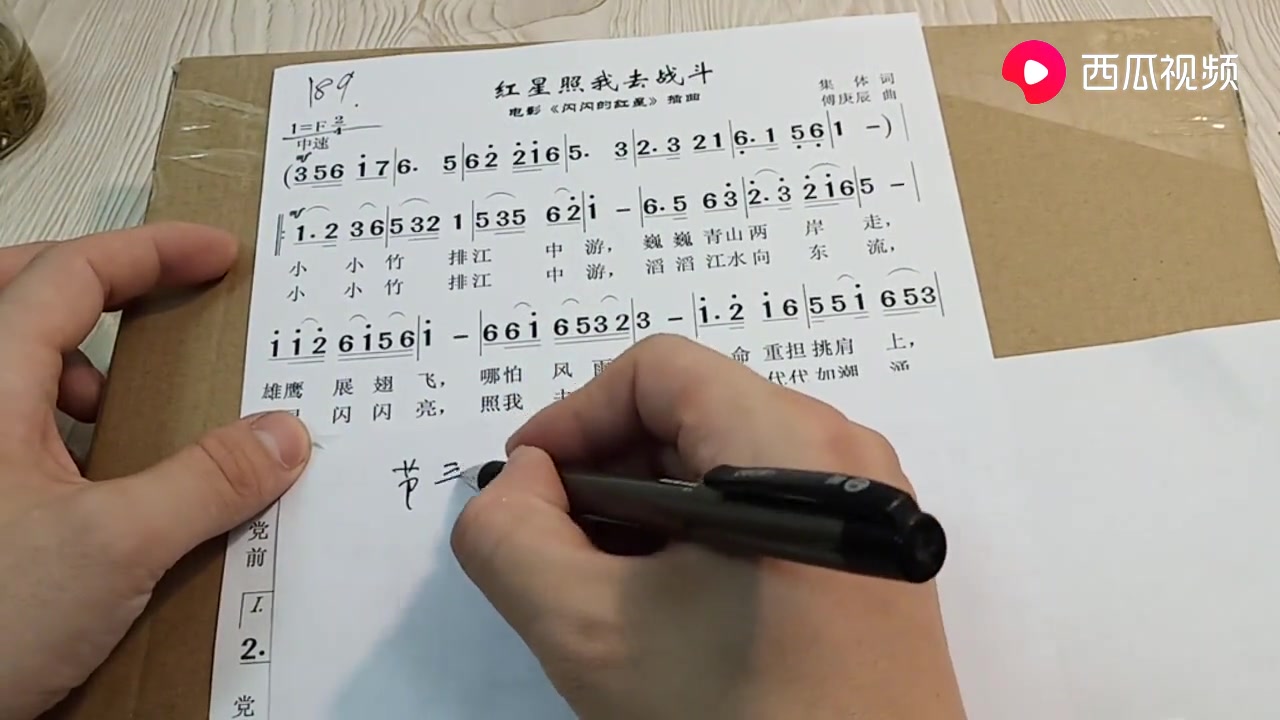 西瓜视频
189.
红星照我去战斗
电影《闪闪的红星》插曲
集 体 词
傅庚辰 曲
1=F 2/4
中速
(3 5 6 i 7 | 6. 5 | 6 2 2 i 6 | 5. 3 | 2. 3 2 1 | 6. 1 5 6 | 1 -)
1. 2 3 6 | 5 3 2 1 | 5 3 5 6 2 | i - | 6. 5 6 3 | 2. 3 2 i 6 | 5 -
小 小 竹 排 江 中 游, 巍 巍 青 山 两 岸 走,
小 小 竹 排 江 中 游, 滔 滔 江 水 向 东 流,
i i 2 6 i 5 6 | i - | 6 6 i 6 5 3 2 | 3 - | i. 2 i 6 | 5 5 i 6 5 3
雄鹰 展 翅 飞, 哪怕 风 雨 命 重担 挑肩 上,
闪 闪 亮, 照我 去 代代 如潮 涌
节 三
党
前
1.
2.
党